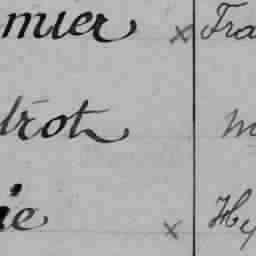 mier x Fra
trot m
ie x Hy